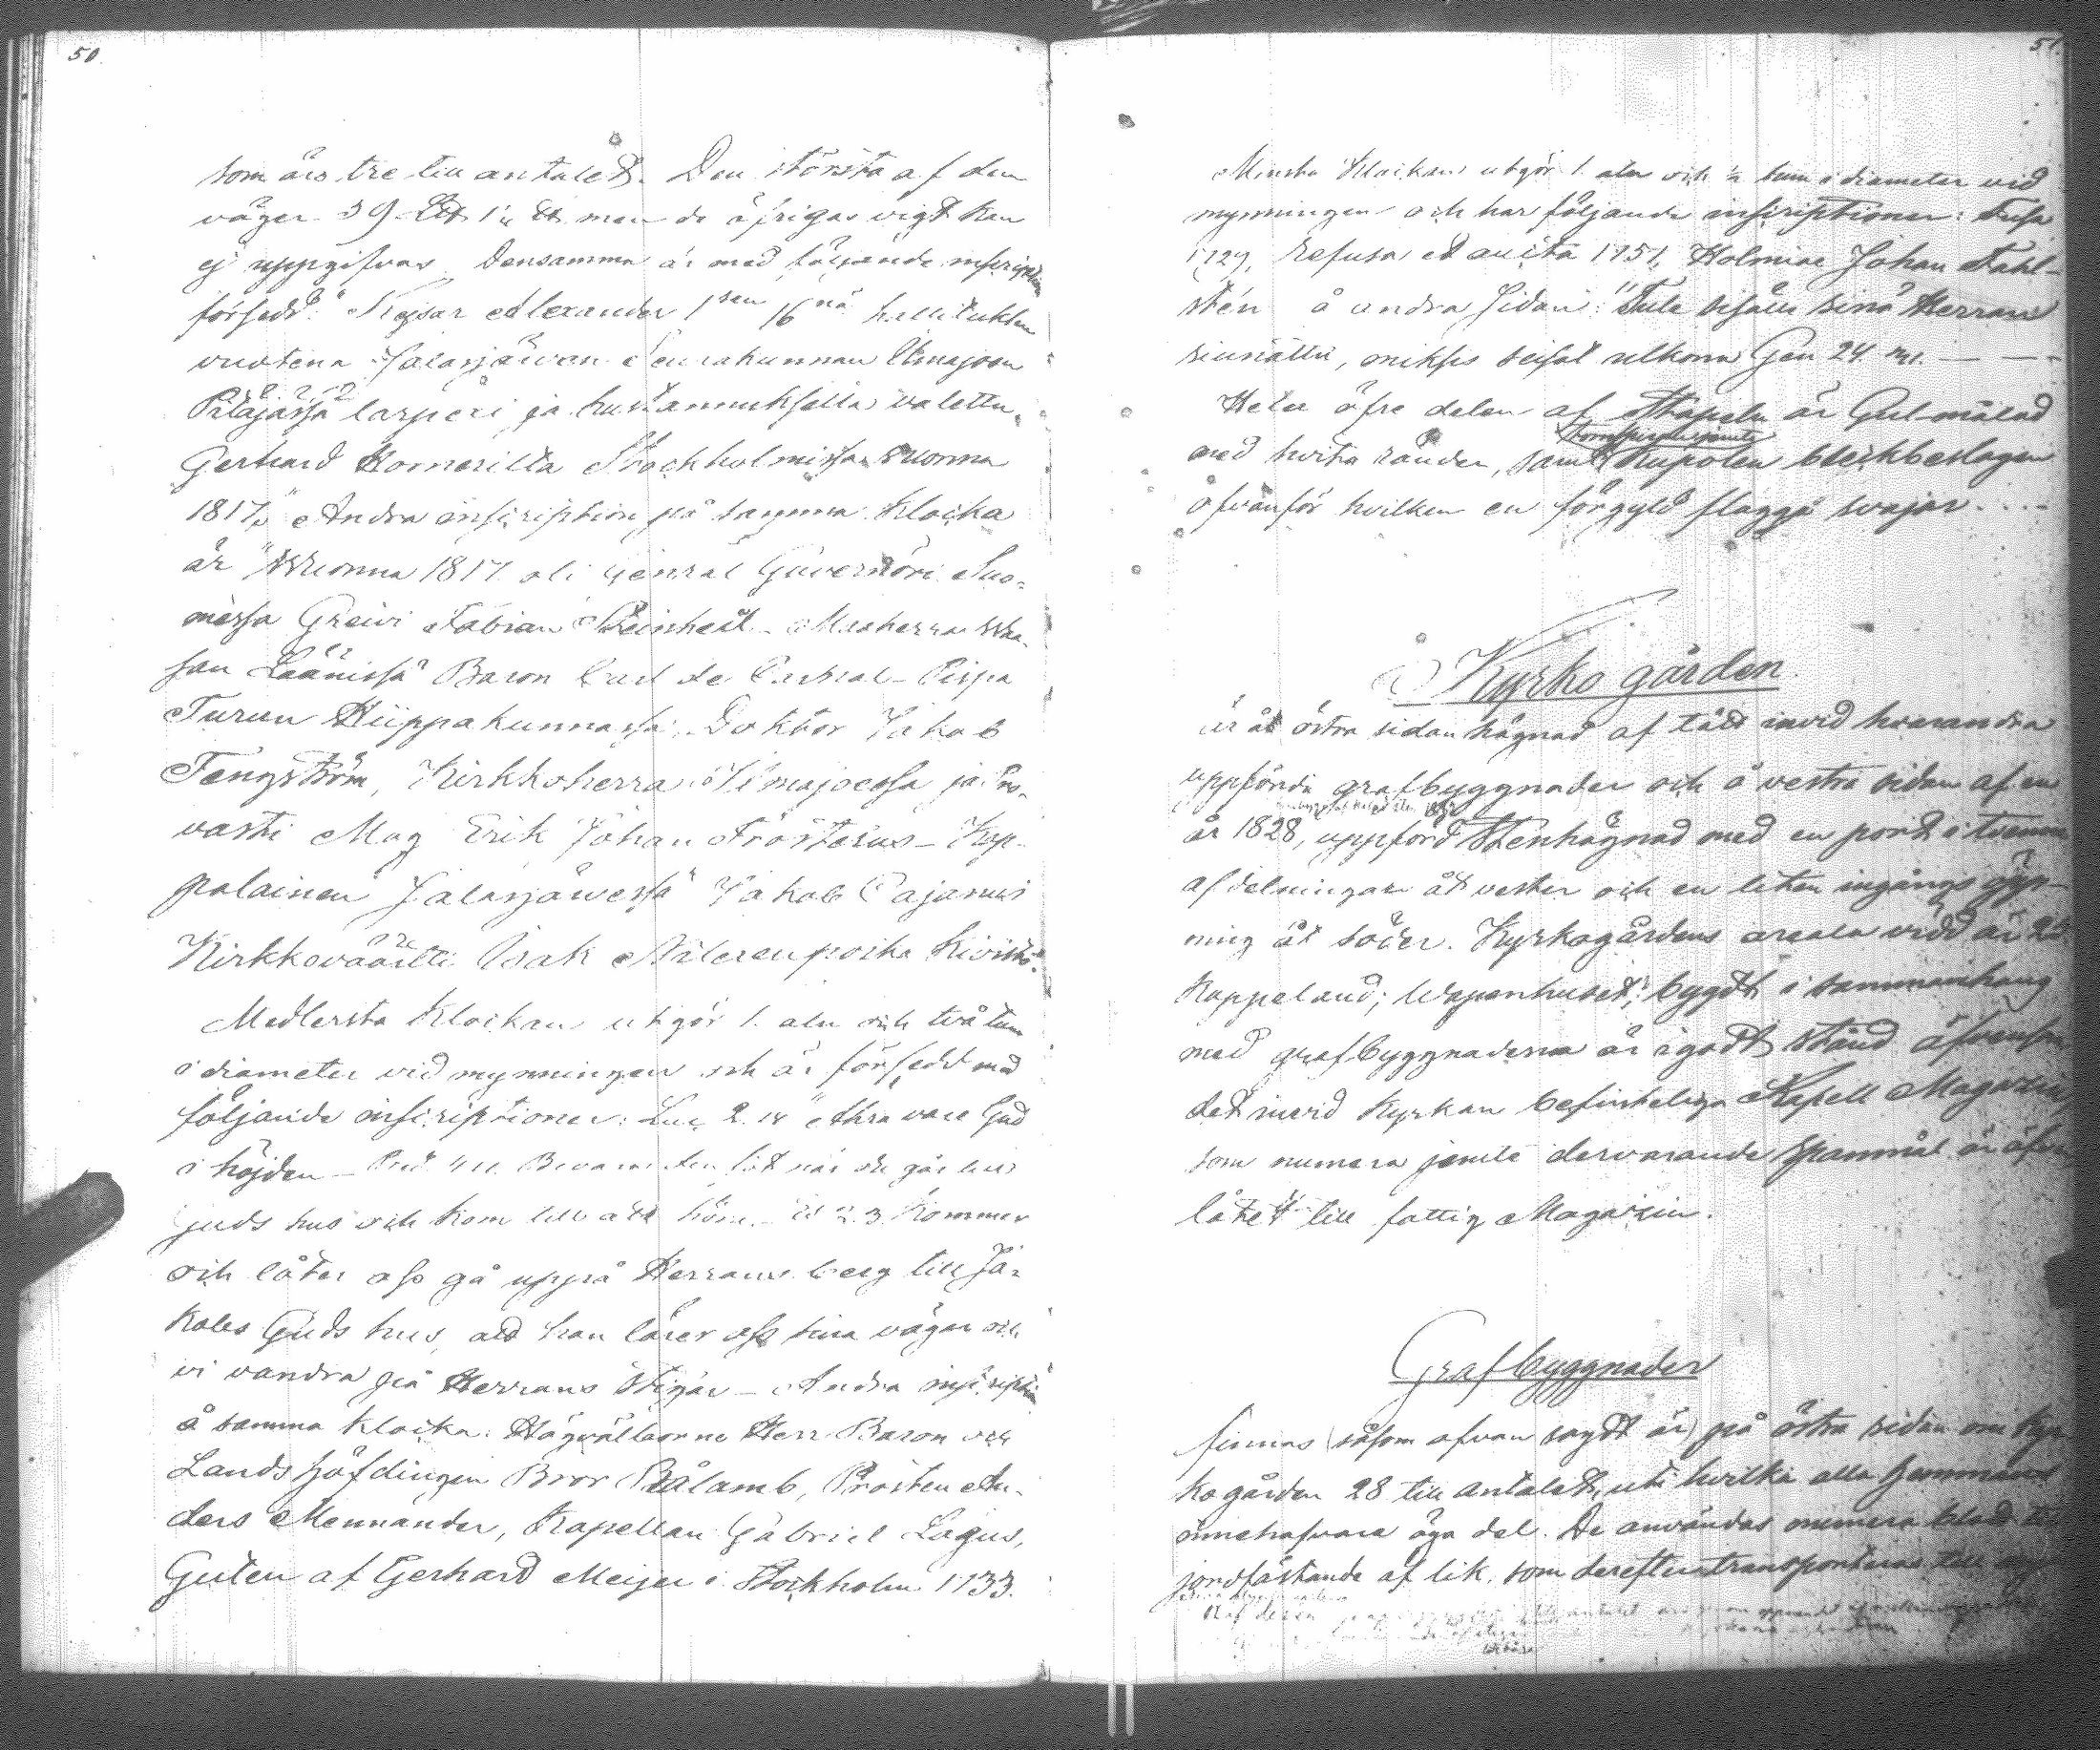 50.
som äro tre till antalet. Den största af dem
väger 39 men de öfrigas vigt kan
ej uppgifvas. Densamma är med följande inscription
försedd: "Kejsar Alexander 1sen 16nä hallituksen
vuotena Jalasjärwen Seurakunnan Ilmajoen
Pitäjässä tarpexi ja kustannuksella valettu
Gerhard Hornerilta Stockholmissa vuonna
1817." Andra inscription på samma klocka
är "Wuonna 1817 oli Genral Guvernöri Suo-
messa Greivi Fabian Steinheil - Maaherra Waa-
san Läänissä Baron Carl de Carnal - Pispa
Turun Hiippakunnassa, Doktor Jakob
Tengström, Kirkkoherra Ilmajoessa ja Pro-
vasti Mag Erik Johan Frosterus - Kap-
palainen Jalasjärwessä Jakob Cajanus
Kirkkovääsilti Isak poika Kivistö."
Medlersta Klockan utgör 1. aln och två tum
i diameter vid mynningen och är försedd med
följande inscriptioner: Luc. 2. 14 "Ähra vare Gud
i höjden - Pred. 4. Bevara din fot när du går till
Guds hus och kom till att höra. - 2. 3. Kommer
och låter oss gå uppå Herrans berg till Ja-
kobs Guds hus, att han lärer oss sina vägar och
vi vandra på Herrans stigar - Andra inscription
å samma klocka: Högvälborne Herr Baron och
Landshöfdingen Bror Rålamb, Prosten An-
ders Mennander, Kapellan Gabriel Lagus,
Guten af Gerhard Meijer i Stockholm 1733.
51.
Minsta Klockan utgör 1. aln och ½ tum i diameter vid
mynningen och har följande inscriptioner: Fusa
1729, Refusa et aucta 1751, Holmiae Johan Fahl-
stén å andra sidan: "Tule sisälle sinä Herran
siunattu, miksis seisot ulkona Gen 24. 31. - - -
Hela öfre delen af Stapeln är Gul målad
med hvita ränder, samt Kupolen bleckbeslagen
ofvanför hvilken en förgyld flagga svajar....
Kyrko gården.
är åt östra sidan hägnad af tätt invid hvarandra
uppförda grafbyggnader och å vestra sidan af en
år 1828, uppförd Stenhägnad med en port i tvenne
afdelningar åt vester och en liten ingångs öpp-
ning åt söder. Kyrkogårdens areala vidd är 25
Kappeland; Wapenhuset, bygdt i sammanhang
med grafbyggnaderna är i godt stånd äfvensom
det invid Kyrkan befinteliga Kapell Magazin
som numera jemte dervarande spanmål är
låtet till fattig Magazin.
Grafbyggnader
finnas (såsom ofvan sagdt är) på östra sidan om Kyr-
kogården 28 till antalet, uti hvilka alla hemmans
innehafvare äga del. De användas numera blott till
jordfästande af lik, som derefter transporteras till